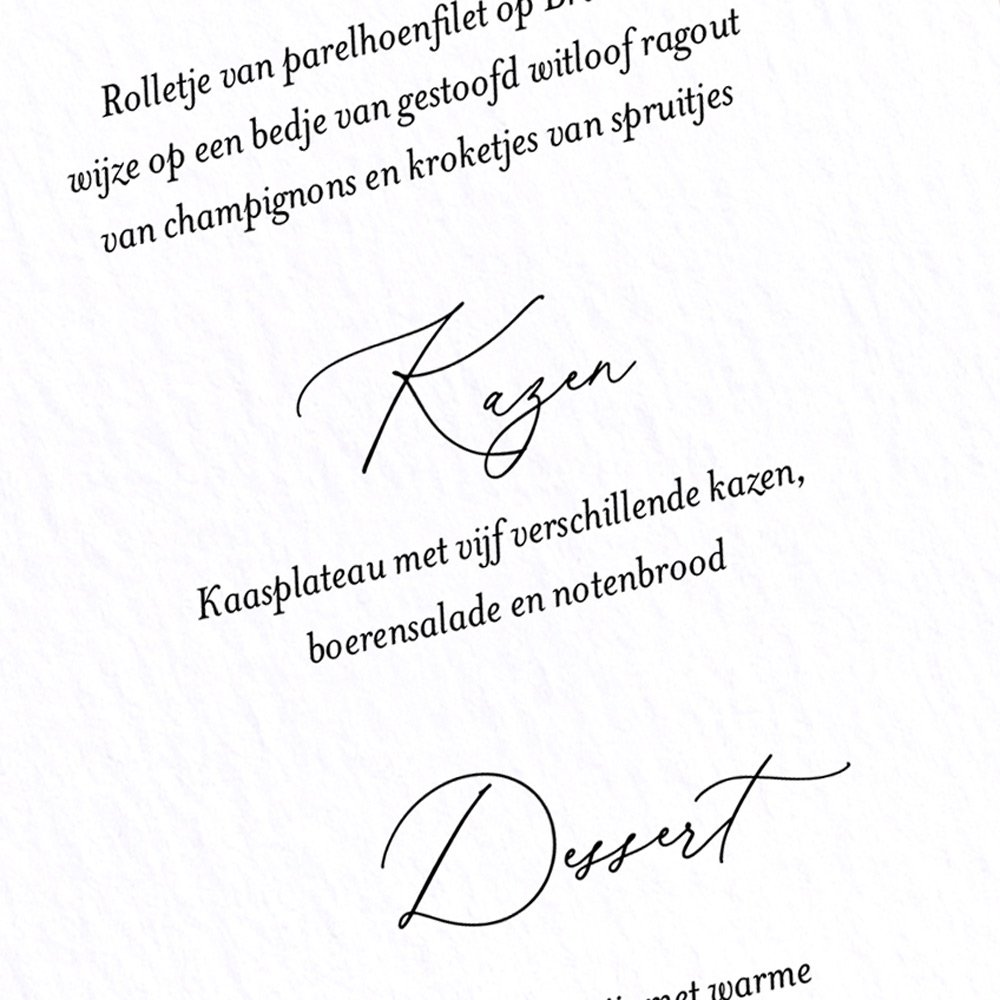 Rolletje van parelhoenfilet op
wijze op een bedje van gestoofd witloof ragout
van champignons en kroketjes van spruitjes
Kazen
Kaasplateau met vijf verschillende kazen,
boerensalade en notenbrood
Dessert
met warme